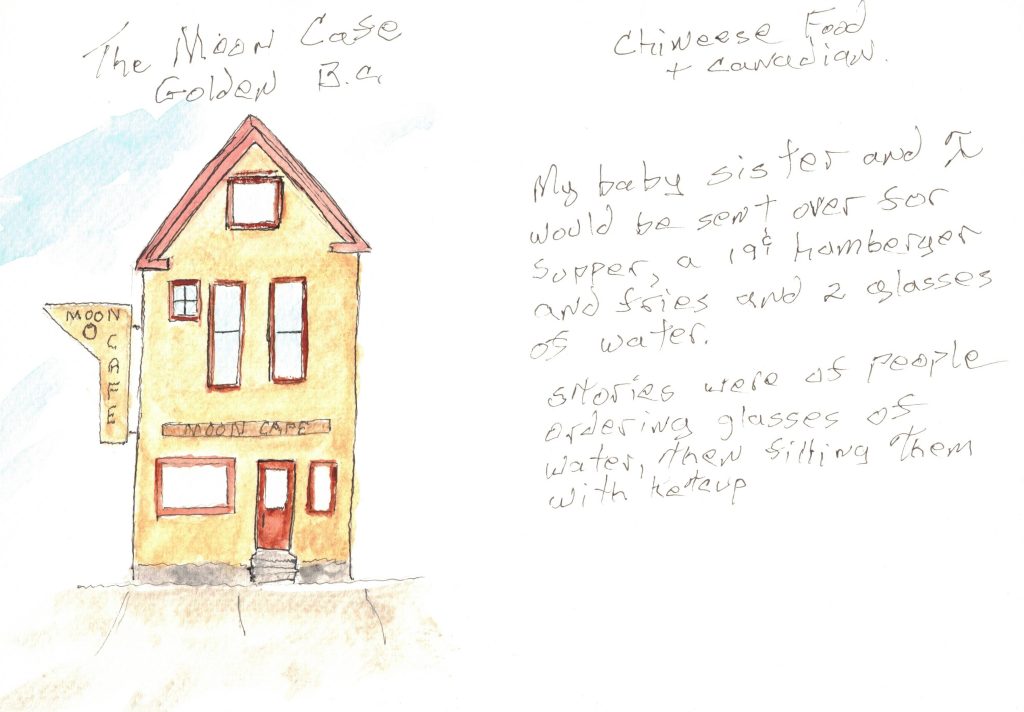 The Moon Cafe
Golden B.C.
MOON
CAFE
MOON CAFE
Chineese Food
+ Canadian.
My baby sister and I
would be sent over for
supper, a 19¢ hamberger
and fries and 2 glasses
of water.
stories were of people
ordering glasses of
water, then filling them
with ketcup